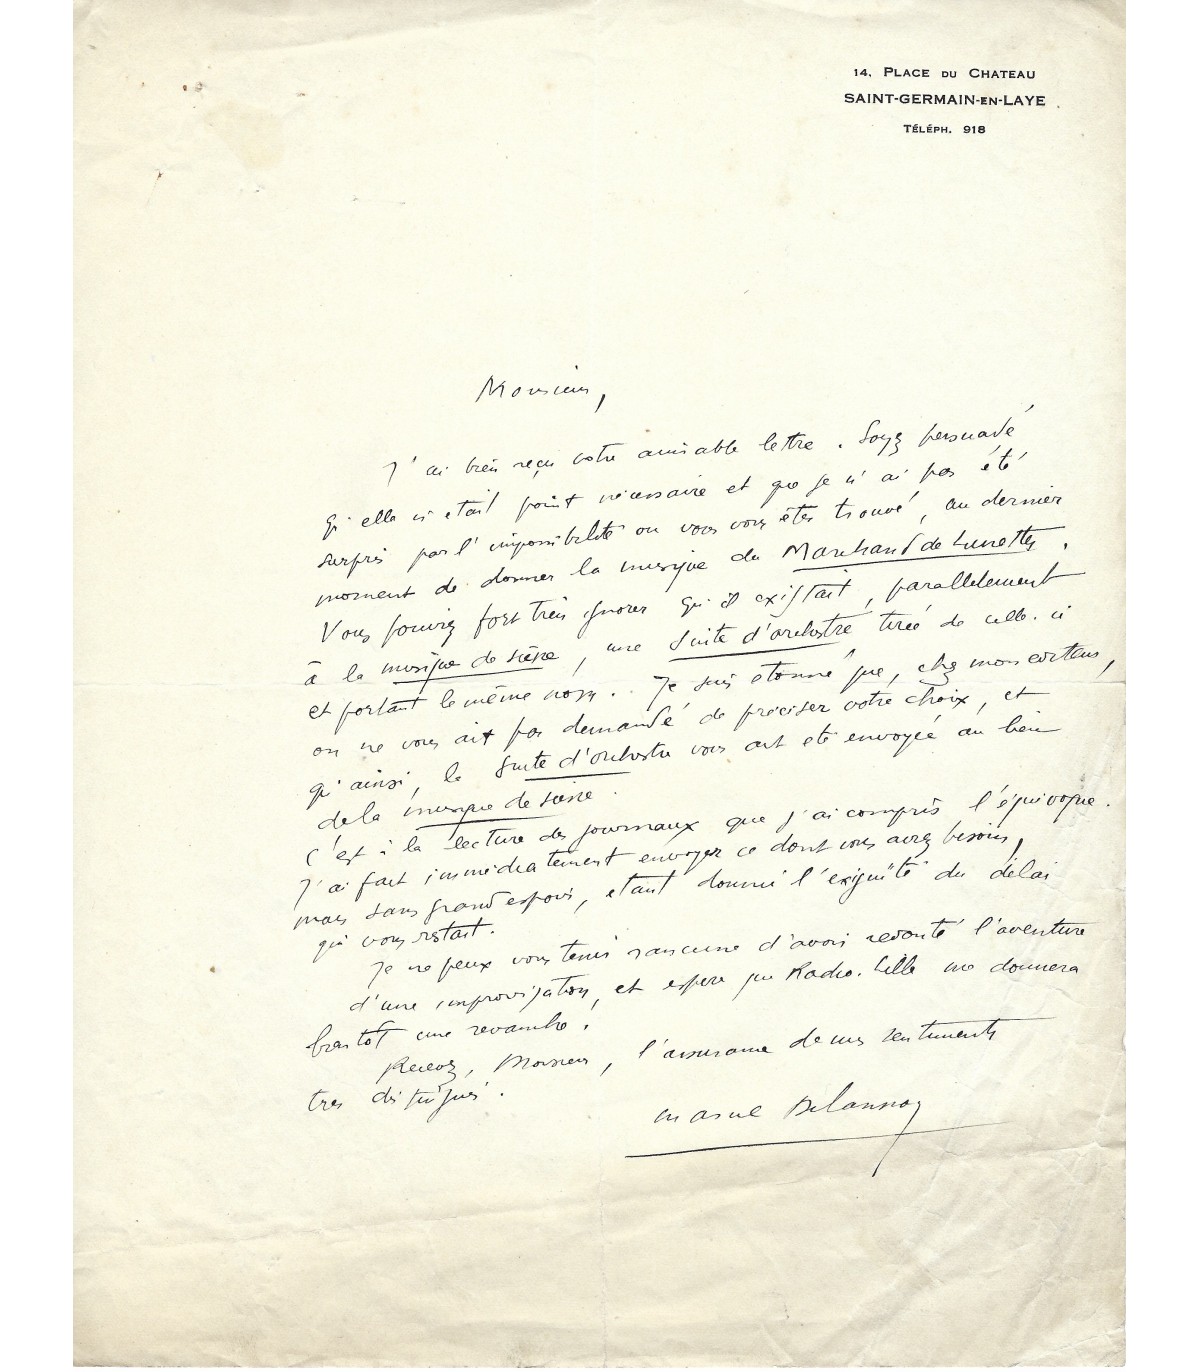 14, PLACE DU CHATEAU
SAINT-GERMAIN-EN-LAYE
TÉLÉPH. 918
Monsieur,
J'ai bien reçu votre aimable lettre. Soyez persuadé
qu'elle n'était point nécessaire et que je n'ai pas été
surpris par l'impossibilité ou vous vous êtes trouvé, au dernier
moment de donner la musique du Marchand de Lunettes.
Vous pouviez fort bien ignorer qu'il existait, parallèlement
à la musique de scène, une Suite d'orchestre tirée de celle-ci
et portant le même nom. Je suis étonné que, chez mon éditeur,
on ne vous ait pas demandé de préciser votre choix, et
qu'ainsi, la Suite d'orchestre vous ait été envoyée au lieu
de la musique de scène.
C'est à la lecture des journaux que j'ai compris l'équivoque.
J'ai fait immédiatement envoyer ce dont vous avez besoin,
mais sans grand espoir, étant donné l'exiguïté du délai
qui vous restait.
Je ne peux vous tenir rancune d'avoir redouté l'aventure
d'une improvisation, et espère que Radio-Lille me donnera
bientôt une revanche.
Recevez, Monsieur, l'assurance de mes sentiments
très distingués.
Marcel Delannoy